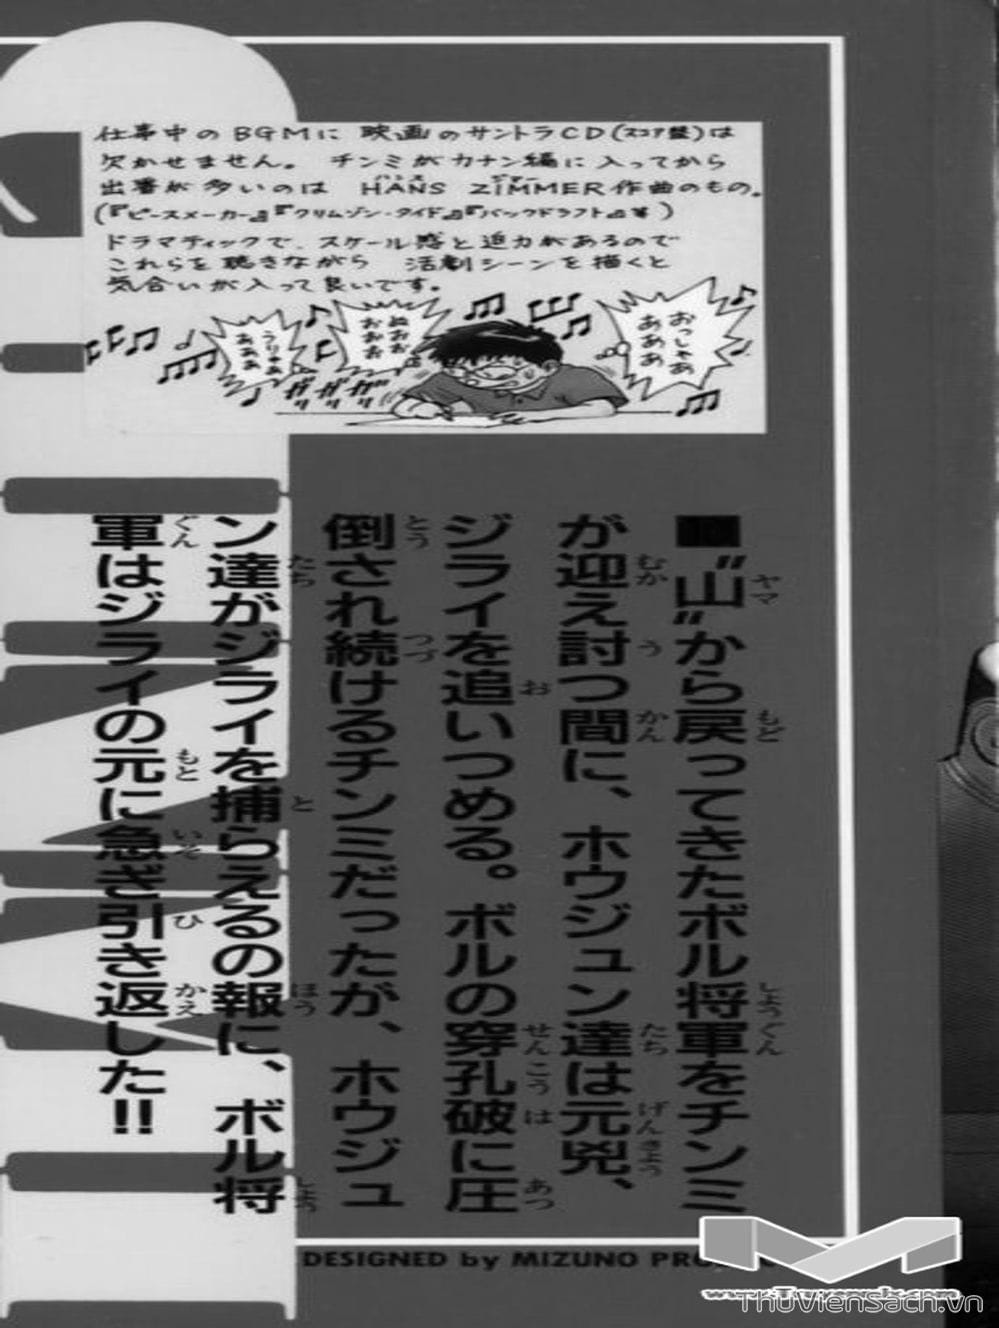 仕事中のBGMに 映画のサントラCD(スコア盤)は
欠かせません。 チンミがカナン編に入ってから
出番が多いのは HANS ZIMMER作曲のもの。
(『ピースメーカー』『クリムゾン・タイド』『バックドラフト』等)
ドラマティックで、スケール感と迫力があるので
これらを聴きながら 活劇シーンを描くと
気合いが入って良いです。
おっしゃあ
あああ
ぬおお
おおお
うりゃあ
あああ
ガリ ガリ ガリ
■〝山〟から戻ってきたボル将軍をチンミ
が迎え討つ間に、ホウジュン達は元兇、
ジライを追いつめる。ボルの穿孔破に圧
倒され続けるチンミだったが、ホウジュ
ン達がジライを捕らえるの報に、ボル将
軍はジライの元に急ぎ引き返した!!
DESIGNED by MIZUNO
ThuVienSach.vn